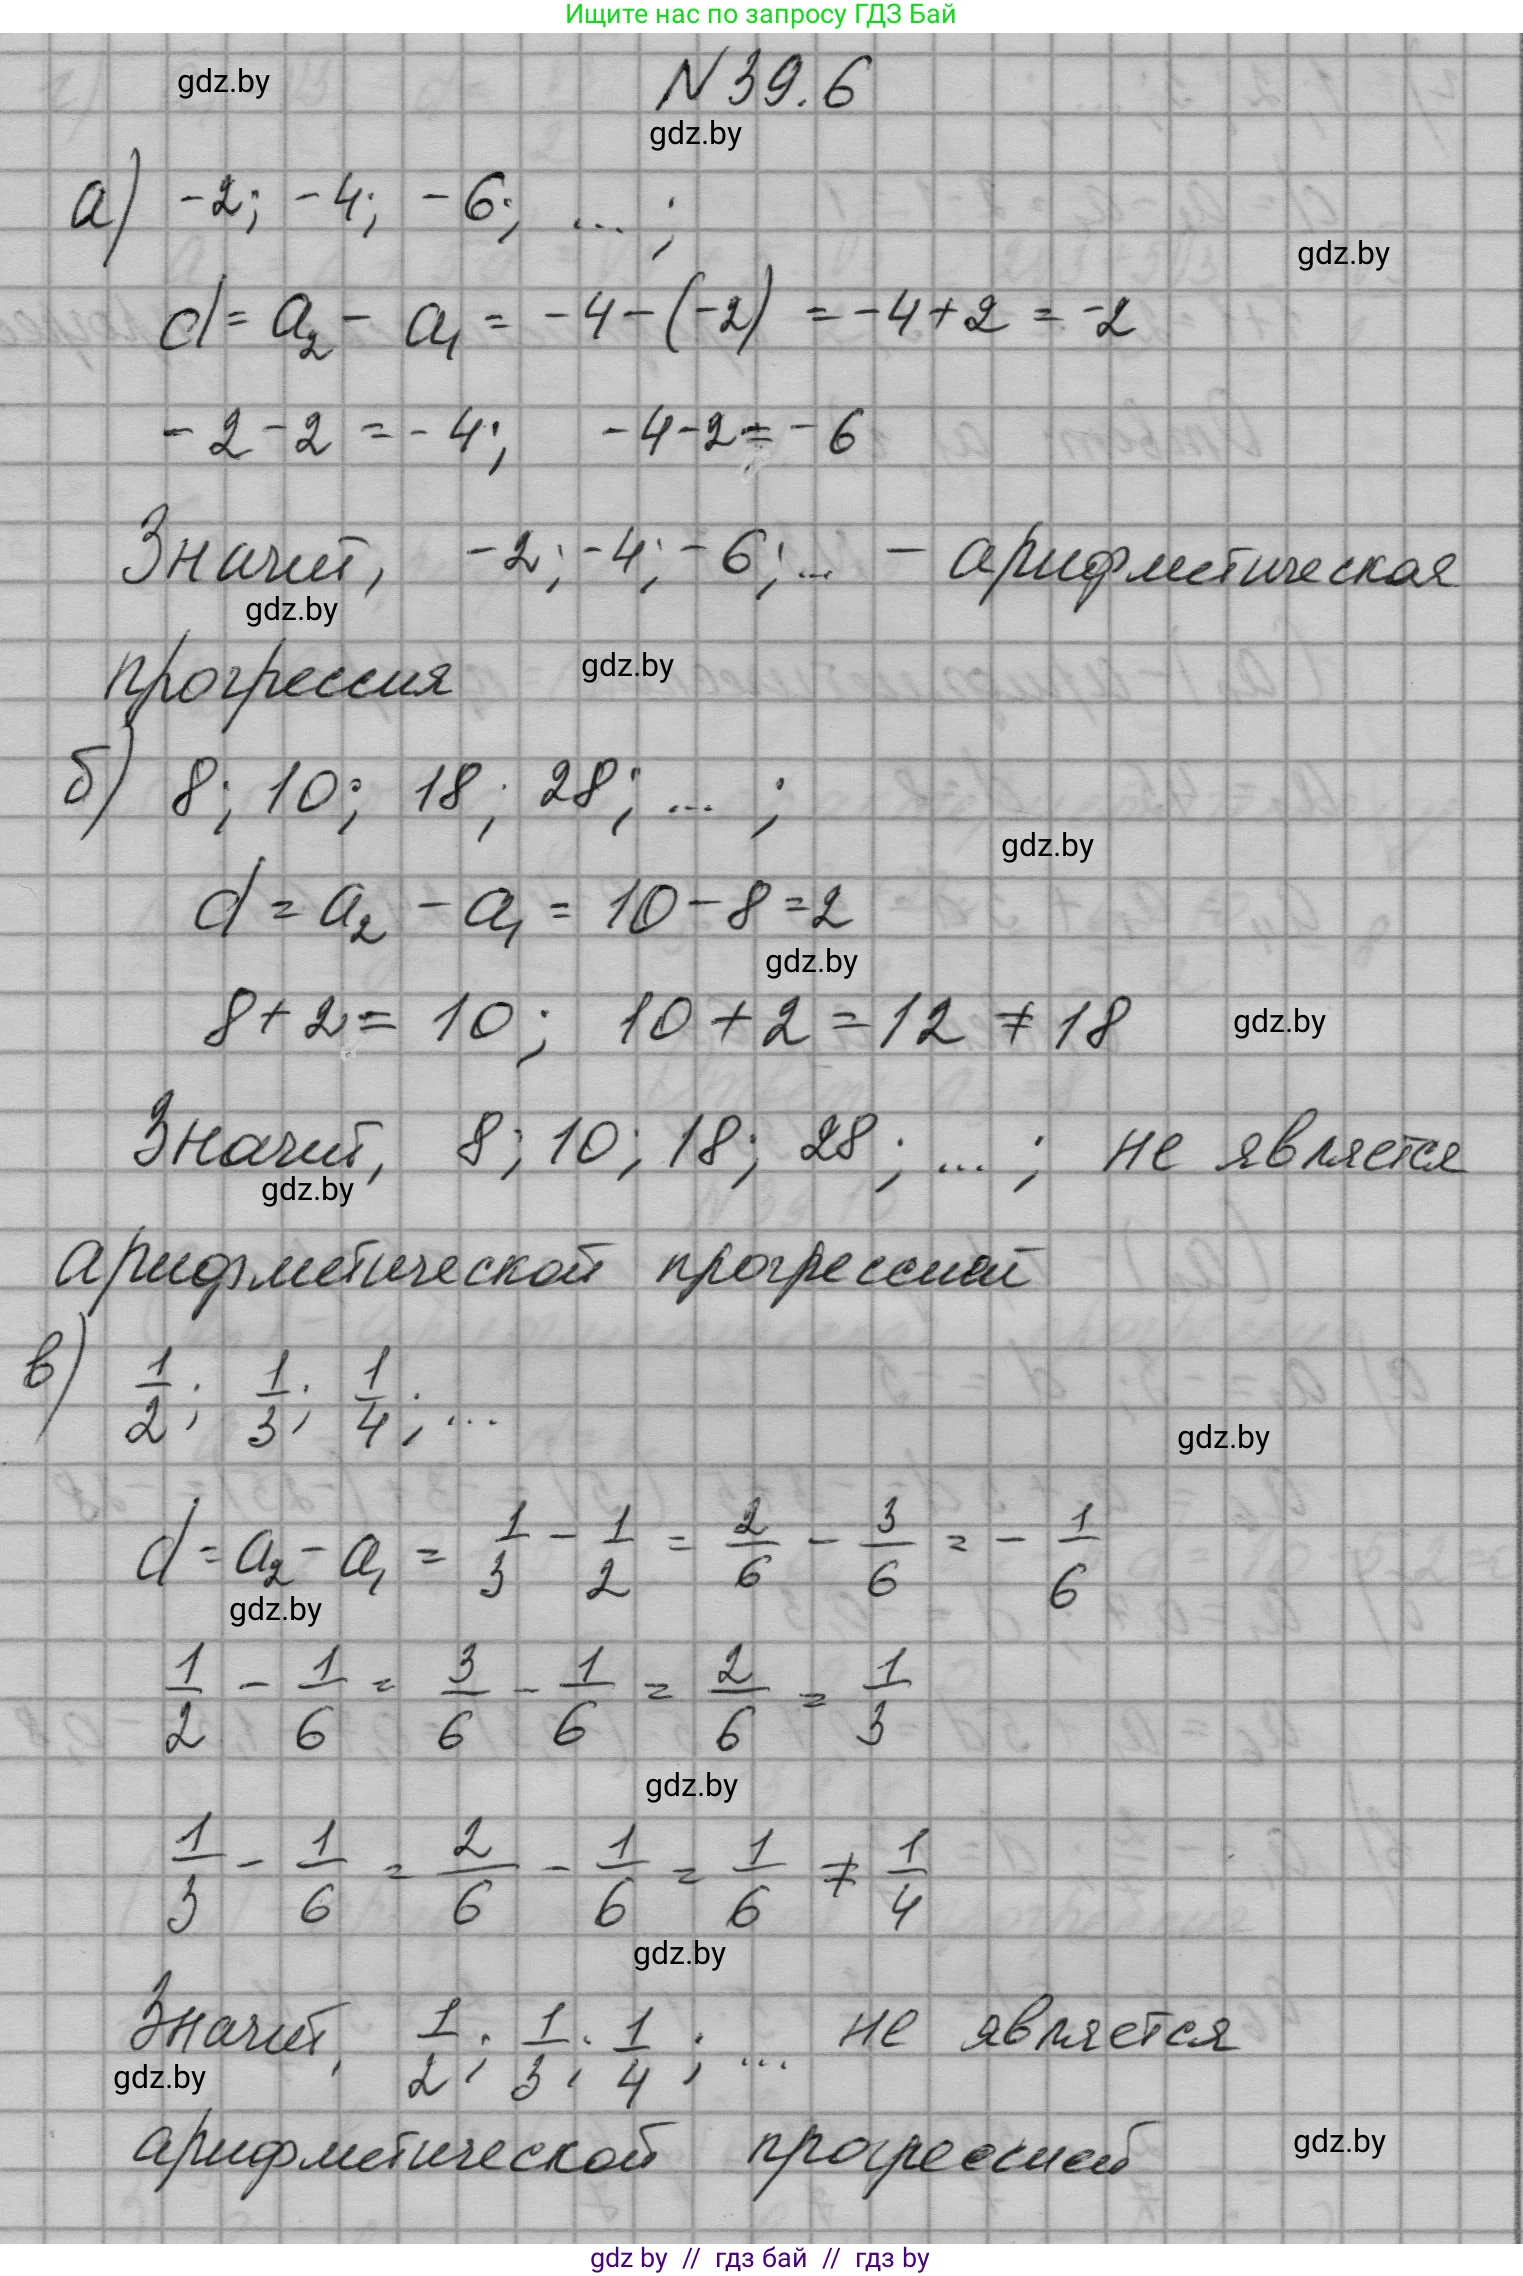 Ищите нас по запросу ГДЗ Бай
gdz.by
N 39.6
gdz.by
а) -2; -4; -6; ... ;
gdz.by
d = a₂ - a₁ = -4 - (-2) = -4 + 2 = -2
-2 - 2 = -4; -4 - 2 = -6
Значит, -2; -4; -6; ... - арифметическая
gdz.by
прогрессия
gdz.by
б) 8; 10; 18; 28; ... ;
gdz.by
d = a₂ - a₁ = 10 - 8 = 2
gdz.by
8 + 2 = 10; 10 + 2 = 12 ≠ 18
gdz.by
Значит, 8; 10; 18; 28; ... ; не является
gdz.by
арифметической прогрессией
в) 1/2; 1/3; 1/4; ...
gdz.by
d = a₂ - a₁ = 1/3 - 1/2 = 2/6 - 3/6 = - 1/6
gdz.by
1/2 - 1/6 = 3/6 - 1/6 = 2/6 = 1/3
gdz.by
1/3 - 1/6 = 2/6 - 1/6 = 1/6 ≠ 1/4
gdz.by
Значит, 1/2; 1/3; 1/4; ... не является
gdz.by
арифметической прогрессией
gdz.by
gdz by // гдз бай // гдз by